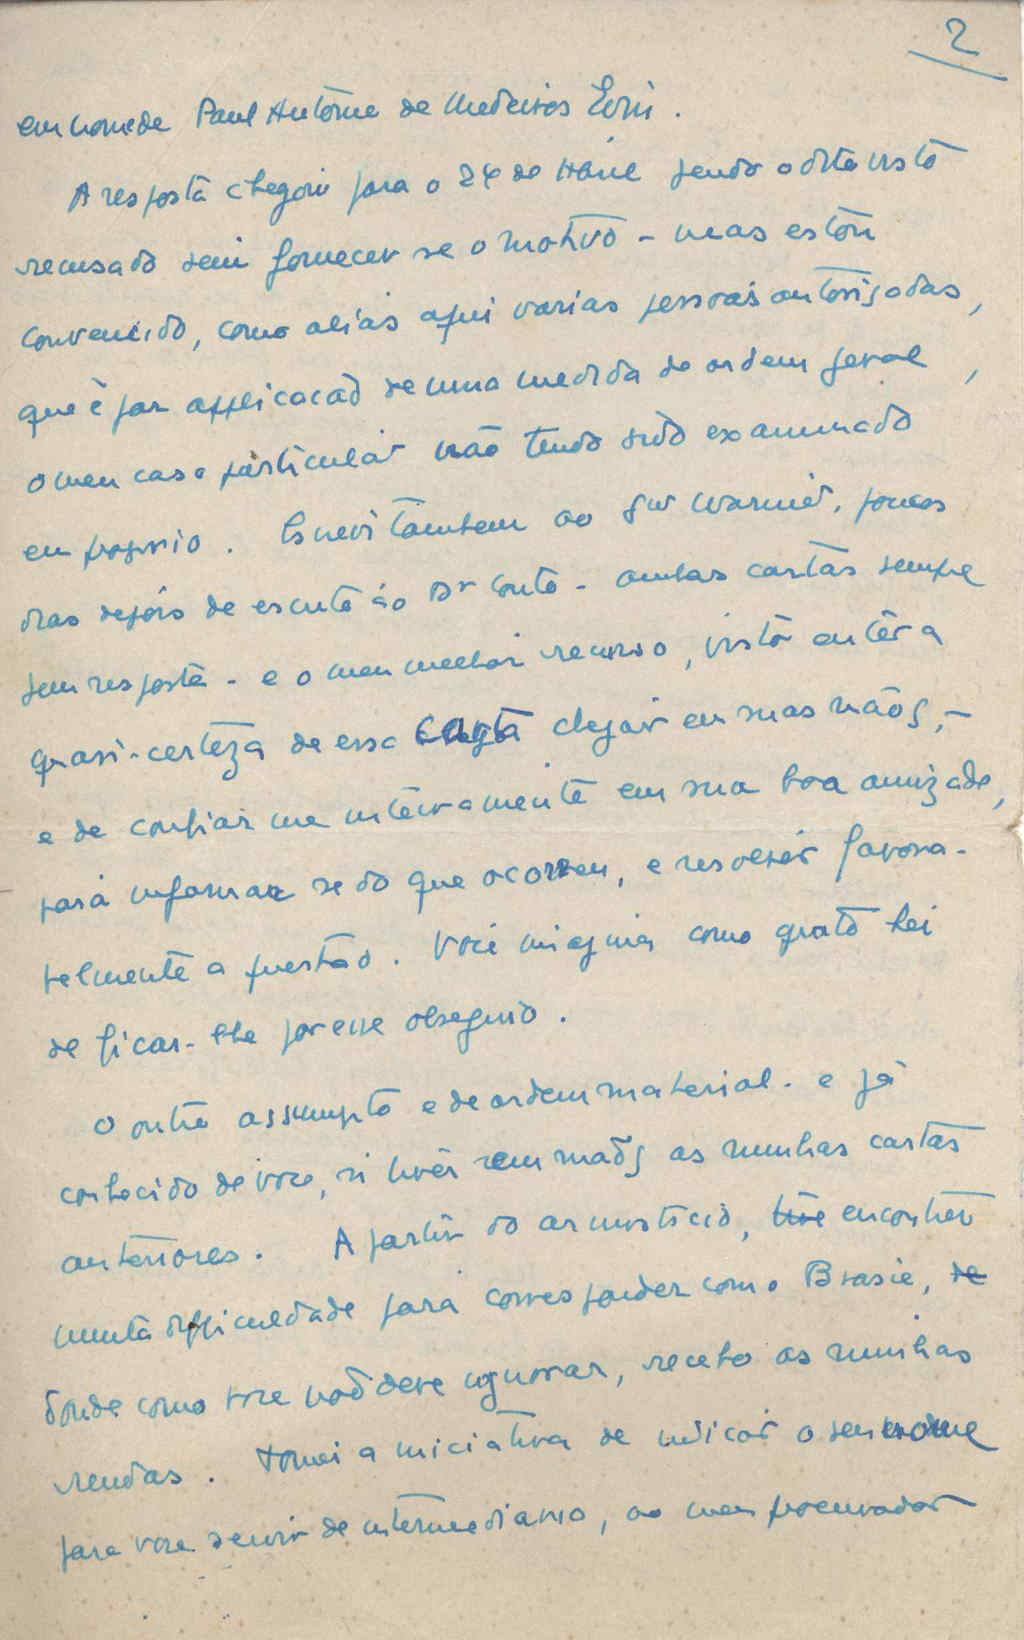 2
em nome de Paul Antoine de Medeiros
A resposta chegou para o 24 de Abril sendo o dito visto
recusado sem fornecer se o motivo - mas estou
convencido, como alias aqui varias pessoas autorizadas,
que è por applicacaõ de uma medida de ordem geral,
o meu caso particular não tendo sido examinado
em proprio. Escrevi tambem ao Snr Warnier, poucos
dias depois de escrito ao Dr Couto - ambas cartas sempre
sem resposta - e o meu melhor recurso, visto en ter a
quasi-certeza de essa carta chegar em suas mãos, -
e de confiar me inteiramente em sua boa amizade,
para informar se do que ocorreu, e resolver favora-
velmente a questão. Você imagina como grato hei
de ficar-lhe por esse obsequio.
O outro assumpto e de ordem material - e já
conhecido de voce, si tiver em maõs as minhas cartas
anteriores. A partir do armisticio, tive encontrei
muita difficuldade para corresponder com o Brasil, de
donde como voce naõ deve ignorar, recebo as minhas
rendas. Tomei a iniciativa de indicar o seu nome
para voce servir de intermediario, ao meu procurador